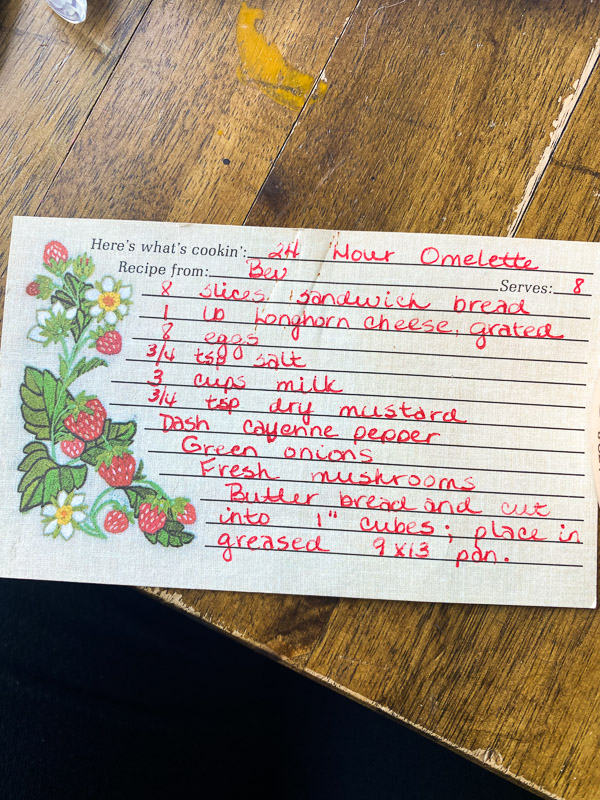 Here's what's cookin': 24 Hour Omelette
Recipe from: Bev Serves: 8
8 slices sandwich bread
1 lb longhorn cheese, grated
8 eggs
3/4 tsp salt
3 cups milk
3/4 tsp dry mustard
Dash cayenne pepper
Green onions
Fresh mushrooms
Butter bread and cut
into 1" cubes; place in
greased 9x13 pan.